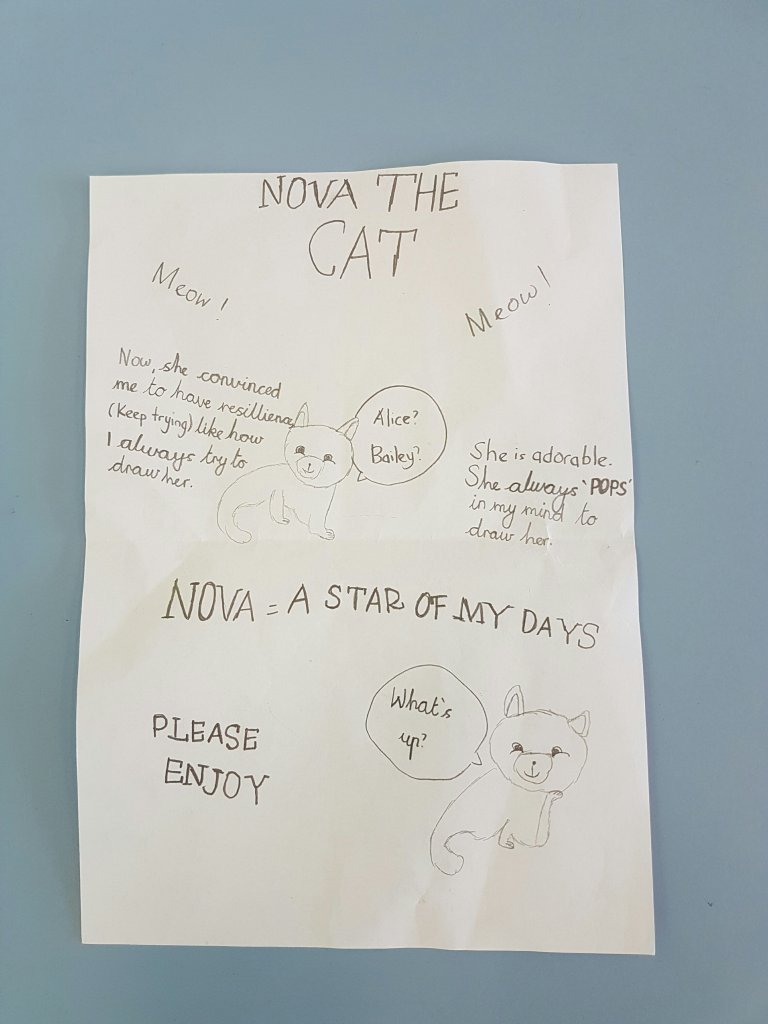 NOVA THE
CAT
Meow!
Meow!
Now, she convinced
me to have resillienc
(Keep trying) like how
I always try to
draw her.
Alice?
Bailey?
She is adorable.
She always 'POPS'
in my mind to
draw her.
NOVA = A STAR OF MY DAYS
What's
up?
PLEASE
ENJOY